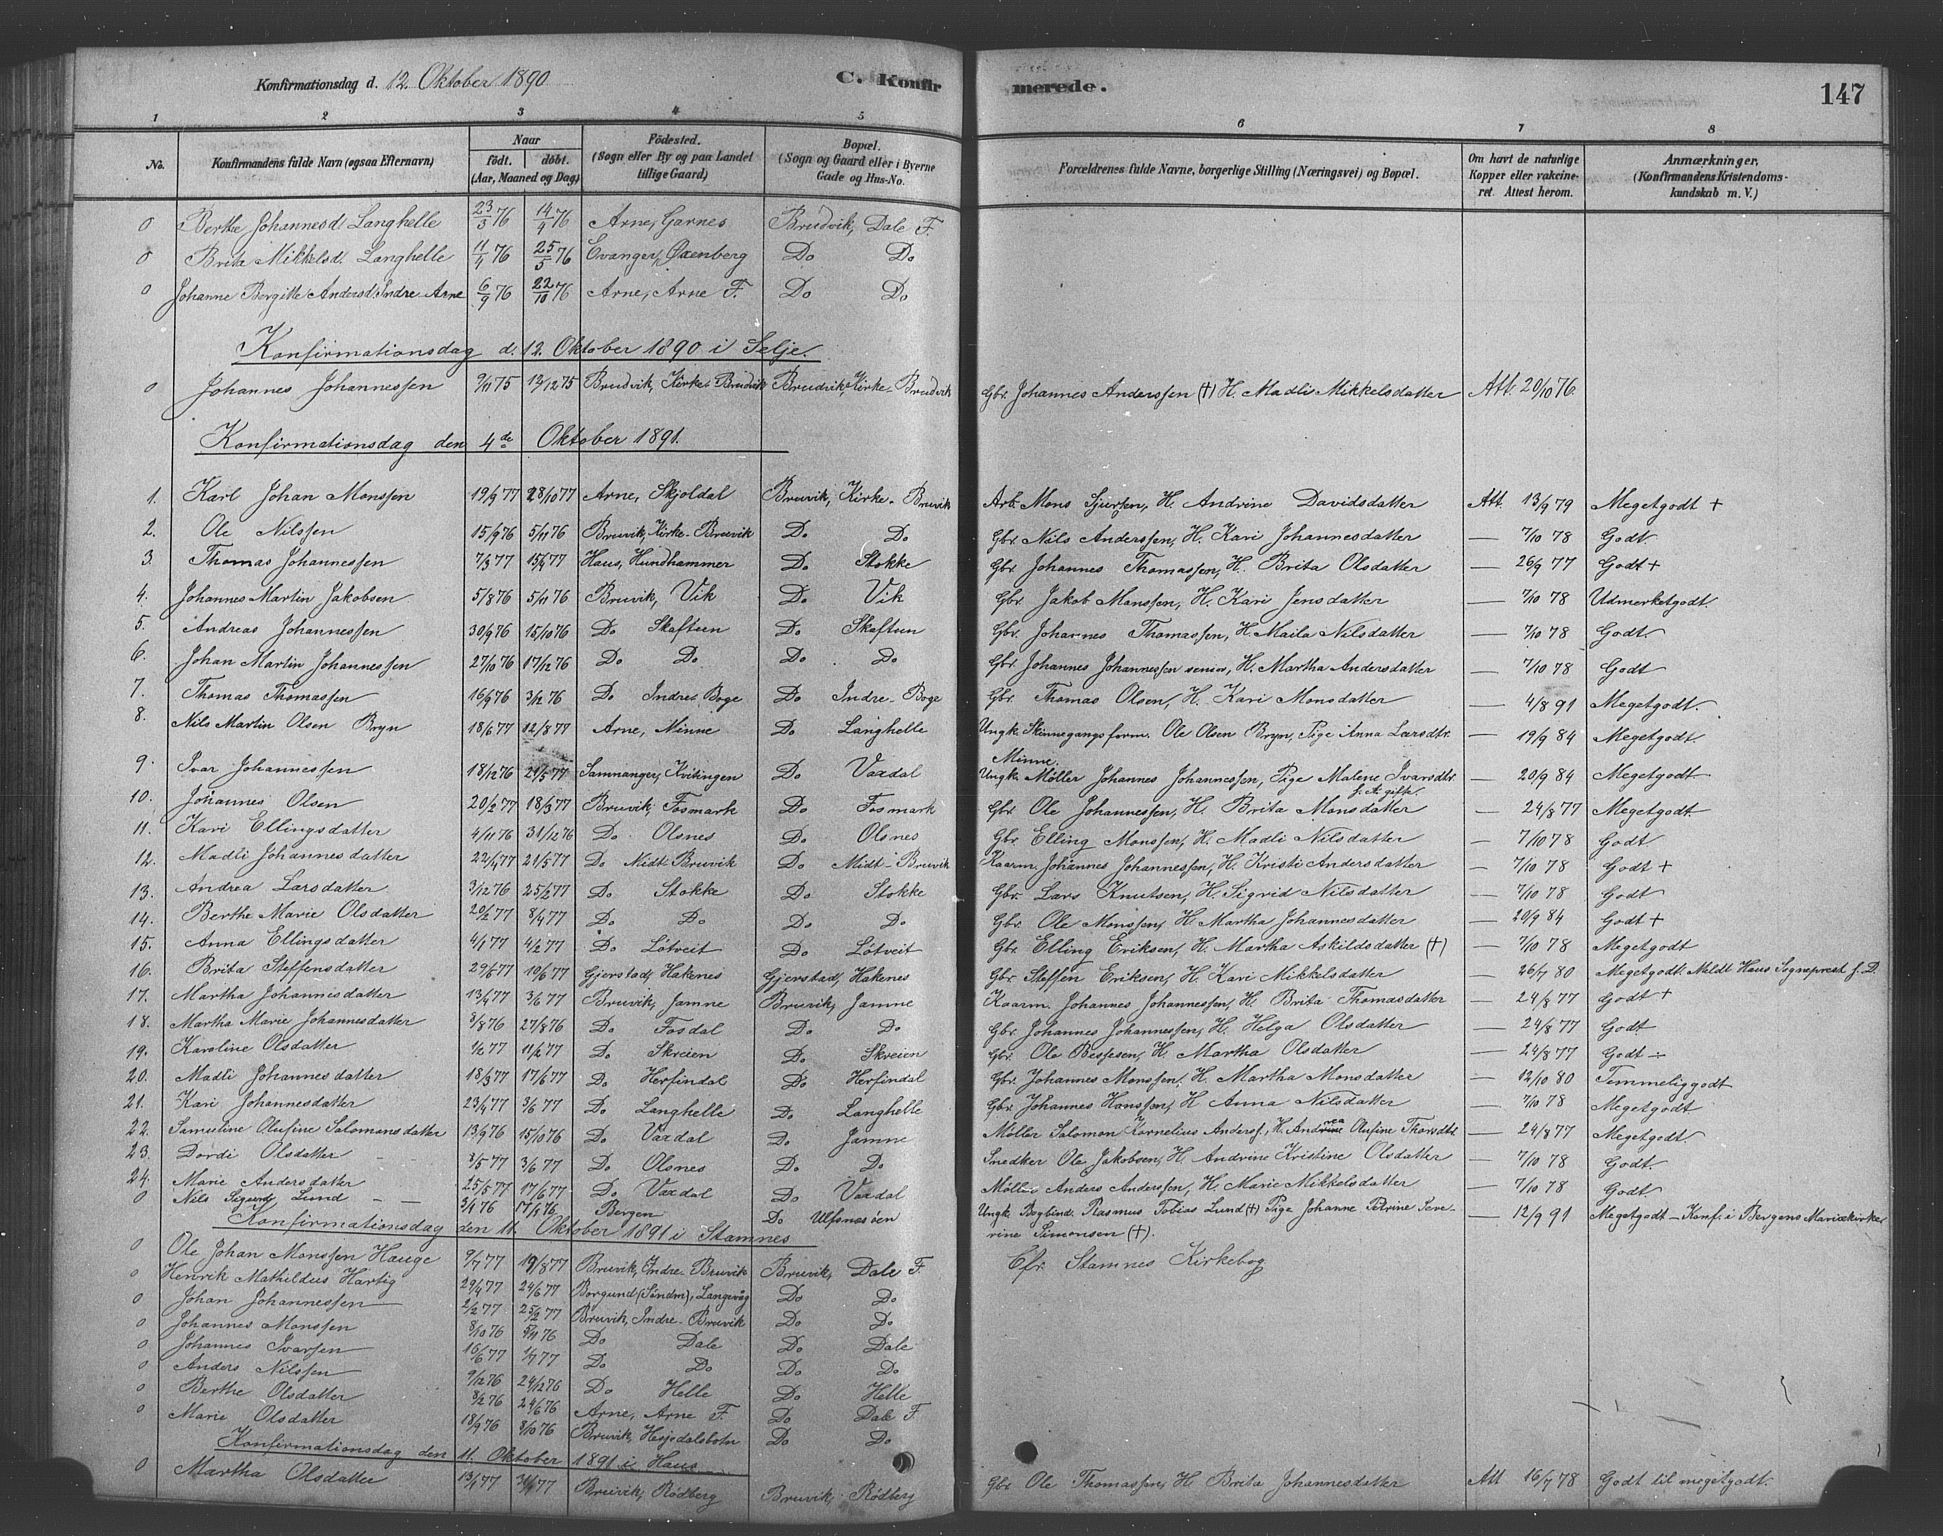 Konfirmationsdag d. 12. Oktober 1890 C. Konfirmerede. 147
1 2 3 4 5 6 7 8
No. Konfirmandens fulde Navn (ogsaa Efternavn) Naar födt. döbt. (Aar, Maaned og Dag) Födested. (Sogn eller By og paa Landet tillige Gaard) Bopæl. (Sogn og Gaard eller i Byerne Gade og Hus-No. Forældrenes fulde Navne, borgerlige Stilling (Næringsvei) og Bopæl. Om havt de naturlige Kopper eller vakcineret. Attest herom. Anmærkninger, (Konfirmandens Kristendomskundskab m. V.)
0 Berthe Johannesd. Langhelle 23/3 76 14/9 76 Arne, Garnes Brudvik, Dale F.
0 Brita Mikkelsd. Langhelle 11/4 76 25/5 76 Evanger, Øxenberg Do Do
0 Johanne Bergitte Andersd. Indre-Arne 6/9 76 22/10 76 Arne, Arne F. Do Do
Konfirmationsdag d. 12. Oktober 1890 i Selje.
0 Johannes Johannessen 9/11 75 12/12 75 Brudvik, Kirke-Brudvik Brudvik, Kirke-Brudvik Gbr. Johannes Anderssen (†) H. Madli Mikkelsdatter Att. 20/10 76.
Konfirmationsdag den 4de Oktober 1891.
1. Karl Johan Monssen 19/9 77 28/10 77 Arne, Skjoldal Bruvik, Kirke-Bruvik Arb. Mons Sjursen, H. Andrine Davidsdatter Att. 13/9 79 Megetgodt +
2. Ole Nilssen 15/9 76 5/11 76 Bruvik, Kirke-Bruvik Do Do Gbr. Nils Anderssen, H. Kari Johannesdatter — 7/10 78 Godt.
3. Thomas Johannessen 7/3 77 15/4 77 Haus, Hundhammer Do Stokke Gbr. Johannes Thomassen, H. Brita Olsdatter — 26/9 77 Godt +
4. Johannes Martin Jakobsen 5/8 76 5/11 76 Bruvik, Vik Do Vik Gbr. Jakob Monssen, H. Kari Jensdatter — 7/10 78 Udmerketgodt.
5. Andreas Johannessen 30/9 76 15/10 76 Do Skaftun Do Skaftun Gbr. Johannes Thomassen, H. Maila Nilsdatter — 7/10 78 Godt.
6. Johan Martin Johannessen 27/10 76 17/12 76 Do Do Do Do Gbr. Johannes Johannessen senior, H. Martha Andersdatter — 7/10 78 Godt
7. Thomas Thomassen 16/9 76 3/12 76 Do Indre-Boge Do Indre-Boge Gbr. Thomas Olsen, H. Kari Monsdatter — 4/8 91 Megetgodt.
8. Nils Martin Olsen Bryn 18/6 77 12/8 77 Arne, Ninne Do Langhelle Ungk. Skinnegangsform. Ole Olsen Bryn, Pige Anna Larsdtr. Minne. — 19/9 84 Megetgodt.
9. Ivar Johannessen 18/12 76 21/5 77 Samnanger, Kvitingen Do Vaxdal Ungk. Møller Johannes Johannessen, Pige Malene Ivarsdtr. — 20/9 84 Megetgodt
10. Johannes Olsen 20/2 77 18/3 77 Bruvik, Fosmark Do Fosmark Gbr. Ole Johannessen, H. Brita Monsdatter — 24/8 77 Megetgodt.
11. Kari Ellingsdatter 4/11 76 31/12 76 Do Olsnes Do Olsnes Gbr. Elling Monssen, H. Madli Nilsdatter — 7/10 78 Godt
12. Madli Johannesdatter 22/4 77 21/5 77 Do Midt-Bruvik Do Midt-Bruvik Kaarm. Johannes Johannessen, H. Kristi Andersdatter — 7/10 78 Godt +
13. Andrea Larsdatter 3/12 76 25/2 77 Do Stokke Do Stokke Gbr. Lars Knutsen, H. Sigrid Nilsdatter — 7/10 78 Godt
14. Berthe Marie Olsdatter 20/2 77 8/4 77 Do Do Do Do Gbr. Ole Monssen, H. Martha Johannesdatter — 20/9 84 Godt +
15. Anna Ellingsdatter 4/1 77 4/2 77 Do Løtveit Do Løtveit Gbr. Elling Eriksen, H. Martha Askildsdatter (†) — 7/10 78 Megetgodt
16. Brita Steffensdatter 29/4 77 10/6 77 Gjerstad, Hakenes Gjerstad, Hakenes Gbr. Steffen Eriksen, H. Kari Mikkelsdatter — 26/7 80 Megetgodt. Meldt Haus Sogneprest s. D.
17. Martha Johannesdatter 13/4 77 3/6 77 Bruvik, Jamne Bruvik, Jamne Kaarm. Johannes Johannessen, H. Brita Thomasdatter — 24/8 77 Godt +
18. Martha Marie Johannesdatter 3/8 76 27/8 76 Do Fosdal Do Do Gbr. Johannes Johannessen, H. Helga Olsdatter — 24/8 77 Godt
19. Karoline Olsdatter 1/2 77 11/2 77 Do Skreien Do Skreien Gbr. Ole Bessesen, H. Martha Olsdatter — 24/8 77 Godt ÷
20. Madli Johannesdatter 18/3 77 17/6 77 Do Herfindal Do Herfindal Gbr. Johannes Monssen, H. Martha Monsdatter — 12/10 80 Temmeliggodt
21. Kari Johannesdatter 23/4 77 3/6 77 Do Langhelle Do Langhelle Gbr. Johannes Hanssen, H. Anna Nilsdatter — 7/10 78 Megetgodt
22. Samuline Olufine Salomonsdatter 13/9 76 15/10 76 Do Vaxdal Do Jamne Møller Salomon Kornelius Anders., H. Andrea Olufine Thorsdtr. — 24/8 77 Megetgodt.
23. Dordi Olsdatter 3/5 77 3/6 77 Do Olsnes Do Do Smedker Ole Jakobsen, H. Andrine Kristine Olsdatter — 7/10 78 Godt.
24. Marie Andersdatter 25/5 77 17/6 77 Do Vaxdal Do Vaxdal Møller Anders Anderssen, H. Marie Mikkelsdatter — 7/10 78 Godt.
0 Nils Sigurd Lund 3/4 76 17/4 76 Bergen Do Ulfsnesøen Ungk. Bogbind. Rasmus Tobias Lund (†) Pige Johanne Petrine Severine Simonsen (†). — 12/9 91 Megetgodt - Konf. i Bergens Mariækirke
Konfirmationsdag den 11. Oktober 1891 i Stamnes
0 Ole Johan Monssen Hauge 9/7 77 19/8 77 Bruvik, Indre-Bruvik Bruvik, Dale F. Cfr. Stamnes Kirkebog
0 Henrik Mathildus Hartig 29/4 77 24/6 77 Borgund (Søndm), Langevåg Do Do
0 Johan Johannessen 2/2 77 25/2 77 Bruvik, Indre-Bruvik Do Do
0 Johannes Monssen 8/10 76 5/11 76 Do Dale Do Dale
0 Johannes Ivarsen 16/6 77 1/7 77 Do Do Do Do
0 Anders Nilssen 9/12 76 24/12 76 Do Helle Do Helle
0 Berthe Olsdatter 8/2 76 24/6 76 Arne, Arne F. Do Dale F.
0 Marie Olsdatter 18/9 76 8/10 76 Bruvik, Hesjedalsbotn Do Do
Konfirmationsdag den 11. Oktober 1891 i Haus
0 Martha Olsdatter 13/1 77 Bruvik, Rødberg Bruvik, Rødberg Gbr. Ole Thomassen, H. Brita Johannesdatter Att 16/7 78 Godt til megetgodt.